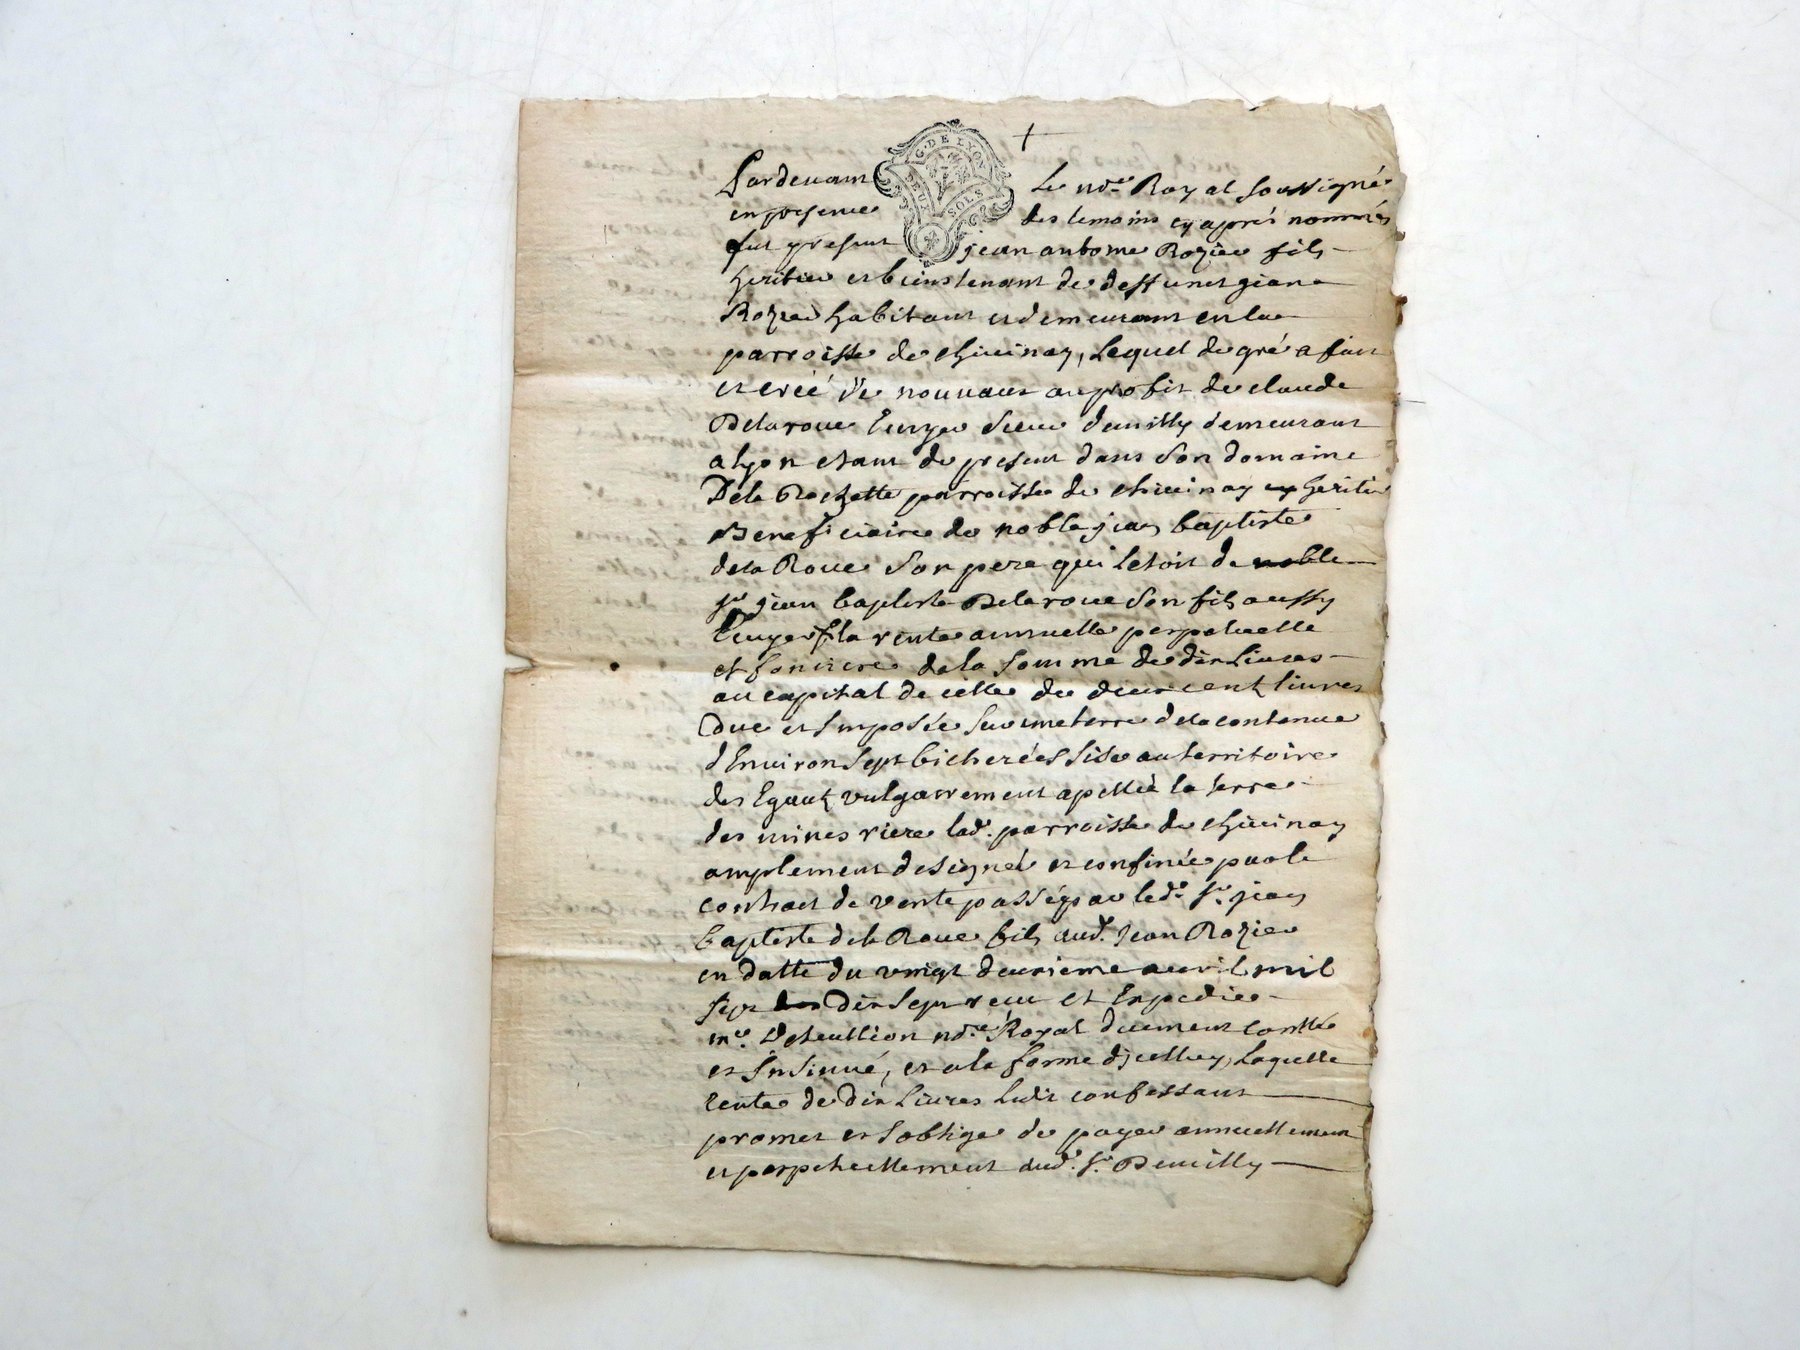 G. DE LYON
DEUX SOLS
Pardevant Le no.re Royal soussigné
en presence des temoins cy aprés nommés
fut present jean antoine Rozier fils
heritier et bienstenant de deffunct
Rozier habitant et demeurant en la
parroisse de chivinay, Lequel de gré a fait
et créé de nouveau au profit de claude
Delaroue Ecuyer sieur demilly demeurant
a lyon etant de present dans son domaine
Dela Rochette parroisse de chivinay heritier
Beneficiaire de noble jean baptiste
dela Roue son pere qui letoit de noble
sr jean baptiste Delaroue son fils aussy
Ecuyer la rente annuelle perpetuelle
et fonciere de la somme de dix livres
au capital de celle de deux cent livres
Due et imposée sur une terre de la contenue
d'Environ sept bicherées sise au territoire
des Egaux vulgairement apellée la terre
des mines riere lad. parroisse de chivinay
amplement designée et confinée par le
contract de vente passé par led. sr. jean
baptiste dela Roue fils aud. Jean Rozier
en datte du vingt deuxieme avril mil
sept dix sept receu et Expedié
me. no.re Royal duement
et Insinué, et a la forme d'jcelluy, Laquelle
rente de dix Livres Ledit confessant
promet et soblige de payer annuellement
et perpetuellement aud. sr. Demilly